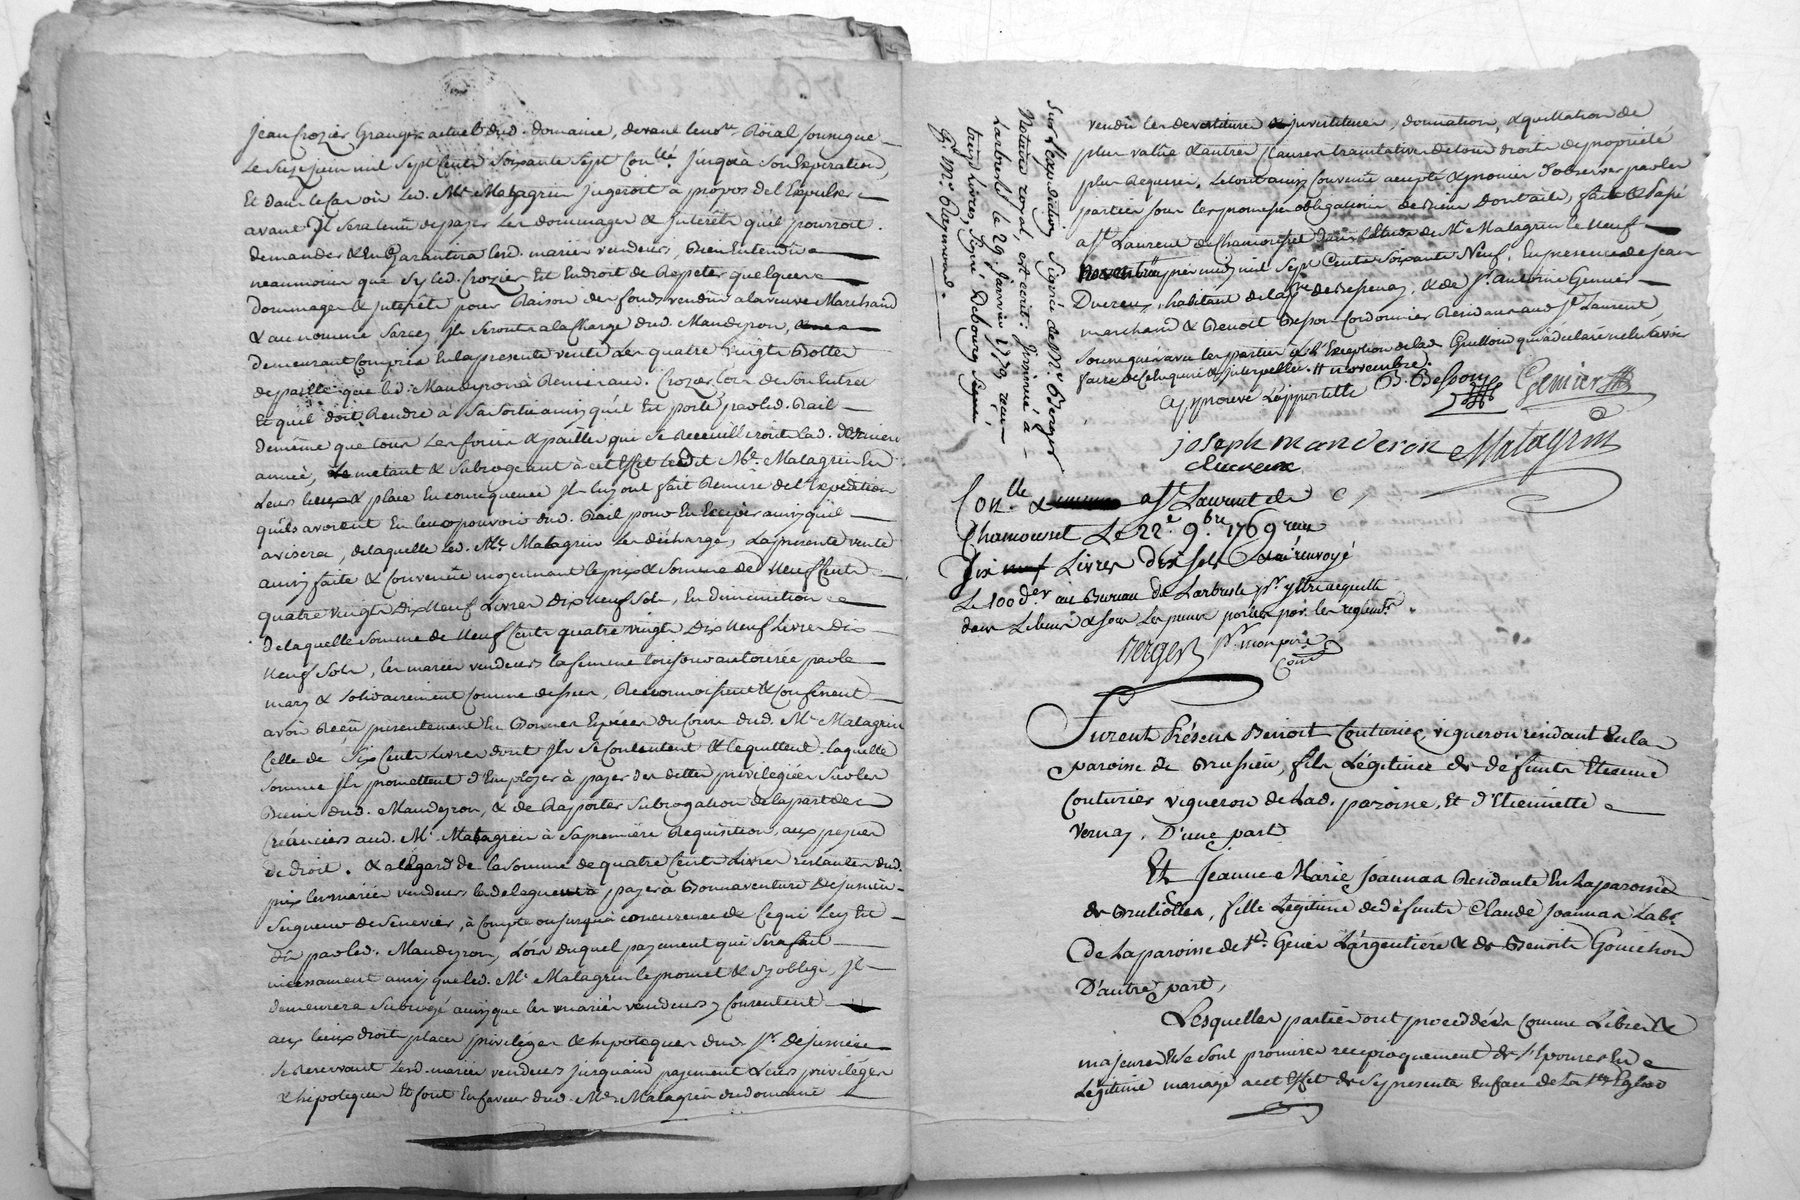 Jean Crozier Granger actuel dud. domaine, devant le no.re Roïal soussigné
Le seize juin mil sept cents soixante sept Con.llé jusqu'à son Expiration,
Et dans le cas où led. M.e Matagrin jugeroit à propos de l'Expulser
avant Il sera tenu de payer les dommages & jnterêts qu'il pourroit
demander & En Garantira lesd. mariés vendeurs, Bien Entendu
neanmoins que sy led. Crozier Est En droit de Repeter quelques
dommages & jnterêts pour Raison des fonds vendus a la veuve Marchand
& au nommé Sarcey Ils seront a la Charge dud. Mandeyron,
demeurant Compris En la presente vente Les quatre vingts Bottes
de paille que led. Mandeyron a Remis aud. Crozier lors de son Entrée
Et qu'il doit Rendre à sa sortie ainsy qu'il Est porté par led. Bail
de même que tous les foins & pailles qui se Recueilliront lad. derniere
année, Le metant & subrogeant à cet Effet ledit M.e Matagrin En
Leurs lieux & place En consequence Ils luy ont fait Remise de l'Expedition
qu'ils avoient En leur pouvoir dud. Bail pour En Exiger ainsy qu'il
avisera, de laquelle led. M.e Matagrin les décharge, La presente vente
ainsy faite & Convenuë moyennant le prix & somme de Neuf Cents
quatre vingts Dix Neuf Livres Dix Neuf Sols, En diminution
de laquelle somme de Neuf Cents quatre vingts Dix Neuf Livres Dix
Neuf Sols, les mariés vendeurs la femme toujours autorisée par le
mary & solidairement Comme dessus, Reconnoissent & Confessent
avoir Reçu presentement En Bonnes Espèces du Cours dud. M.e Matagrin
Celle de Six Cents Livres dont Ils se Contentent & le quittent. laquelle
somme Ils promettent d'Employer à payer des dettes privilegiées sur les
Biens dud. Mandeyron, & de Raporter subrogation de la part des
Créanciers aud. M.e Matagrin à sa premiére Requisition, aux peynes
de droit. & a l'égard de la somme de quatre Cents Livres restantes dud.
prix les mariés vendeurs le deleguent à payer à Bonnaventure Dejussieu
Seigneur de Senevier, à Compte ou jusqu'à concurrence de Ce qui Luy Est
dû par led. Mandeyron, Lors duquel payement qui sera fait
incessament ainsy que led. M.e Matagrin le promet & s'y oblige, Il
demeurera subrogé ainsy que les mariés vendeurs y Consentent
aux Lieux droit, places privilèges & hipoteques dud. S.r Dejussieu
se Reservant lesd. mariés vendeurs jusqu'aud. payement Leurs privilèges
& hipoteques Et font En faveur dud. M.e Matagrin du domaine
Sur l'expedition Signée de M.e Berger
Notaire royal, est ecrit: Insinué à
Larbresle le 29. janvier 1770 reçu
treize Livres, Signé Debourg Signé
G.r M.e Guaymond.
vendu les devetiture & jnvestiture, donnation, & quittation de
plus value & autres Clauses translatives de tous droits de proprieté
plus Requises. Le tout ainsy Convenu accepté & promis d'observer par les
parties sous les peines & obligations de Bien Dont acte, fait & Passé
a S.t Laurent de Chamousset dans l'Etude de M.e Matagrin le Neuf
Novembre apres midy mil Sept Cents Soixante Neuf, En presence de Jean
Ducreux, habitant de la p.sse de Bessenay, & de S.r Antoine Genier
marchand & Benoit Besson Cordonnier Residants aud. S.t Laurent
soussignés avec les parties à l'Exception de lad. Guilloud qui a declaré ne le savoir
faire de Ce Enquise & jnterpellée. 11 novembre.
Approuvé l'appostille B. Besson Genier
joseph manderon Matagrin
ducreux
Con.llé a S.t Laurent de
Chamousset Le 22.e 9.bre 1769 reçu
Dix Livres dix sols & ai renvoyé
Le 100.e d.er au Bureau de Larbresle p.r y Etre acquitté
dans Le delai & sous Les peines portées par les reglem.ts
Berger p.r mon pere
Com.
Furent Présens Benoit Couturier vigneron résidant En la
paroisse de Brussieu, fils Légitime de défunts Etienne
Couturier vigneron de Lad. paroisse, Et d'Etiennette
Vernay, D'une part
Et Jeanne Marie Joannas Résidante En La paroisse
de Brulioles, fille Légitime de défunts Claude Joannas Lab.r
de La paroisse de S.t Genis L'argentiére & de Benoite Gonichon
D'autre part,
Lesquelles parties ont proceddées Comme Libres &
majeures & se sont promises reciproquement de s'Epouser En
Légitime mariage a cet Effet de se presenter En face de La S.te Eglise